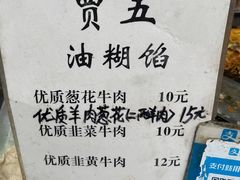 贾五
油糊馅
优质葱花牛肉 10元
优质羊肉葱花(二两肉)15元
优质韭菜牛肉 10元
优质韭黄牛肉 12元
支
支付就用